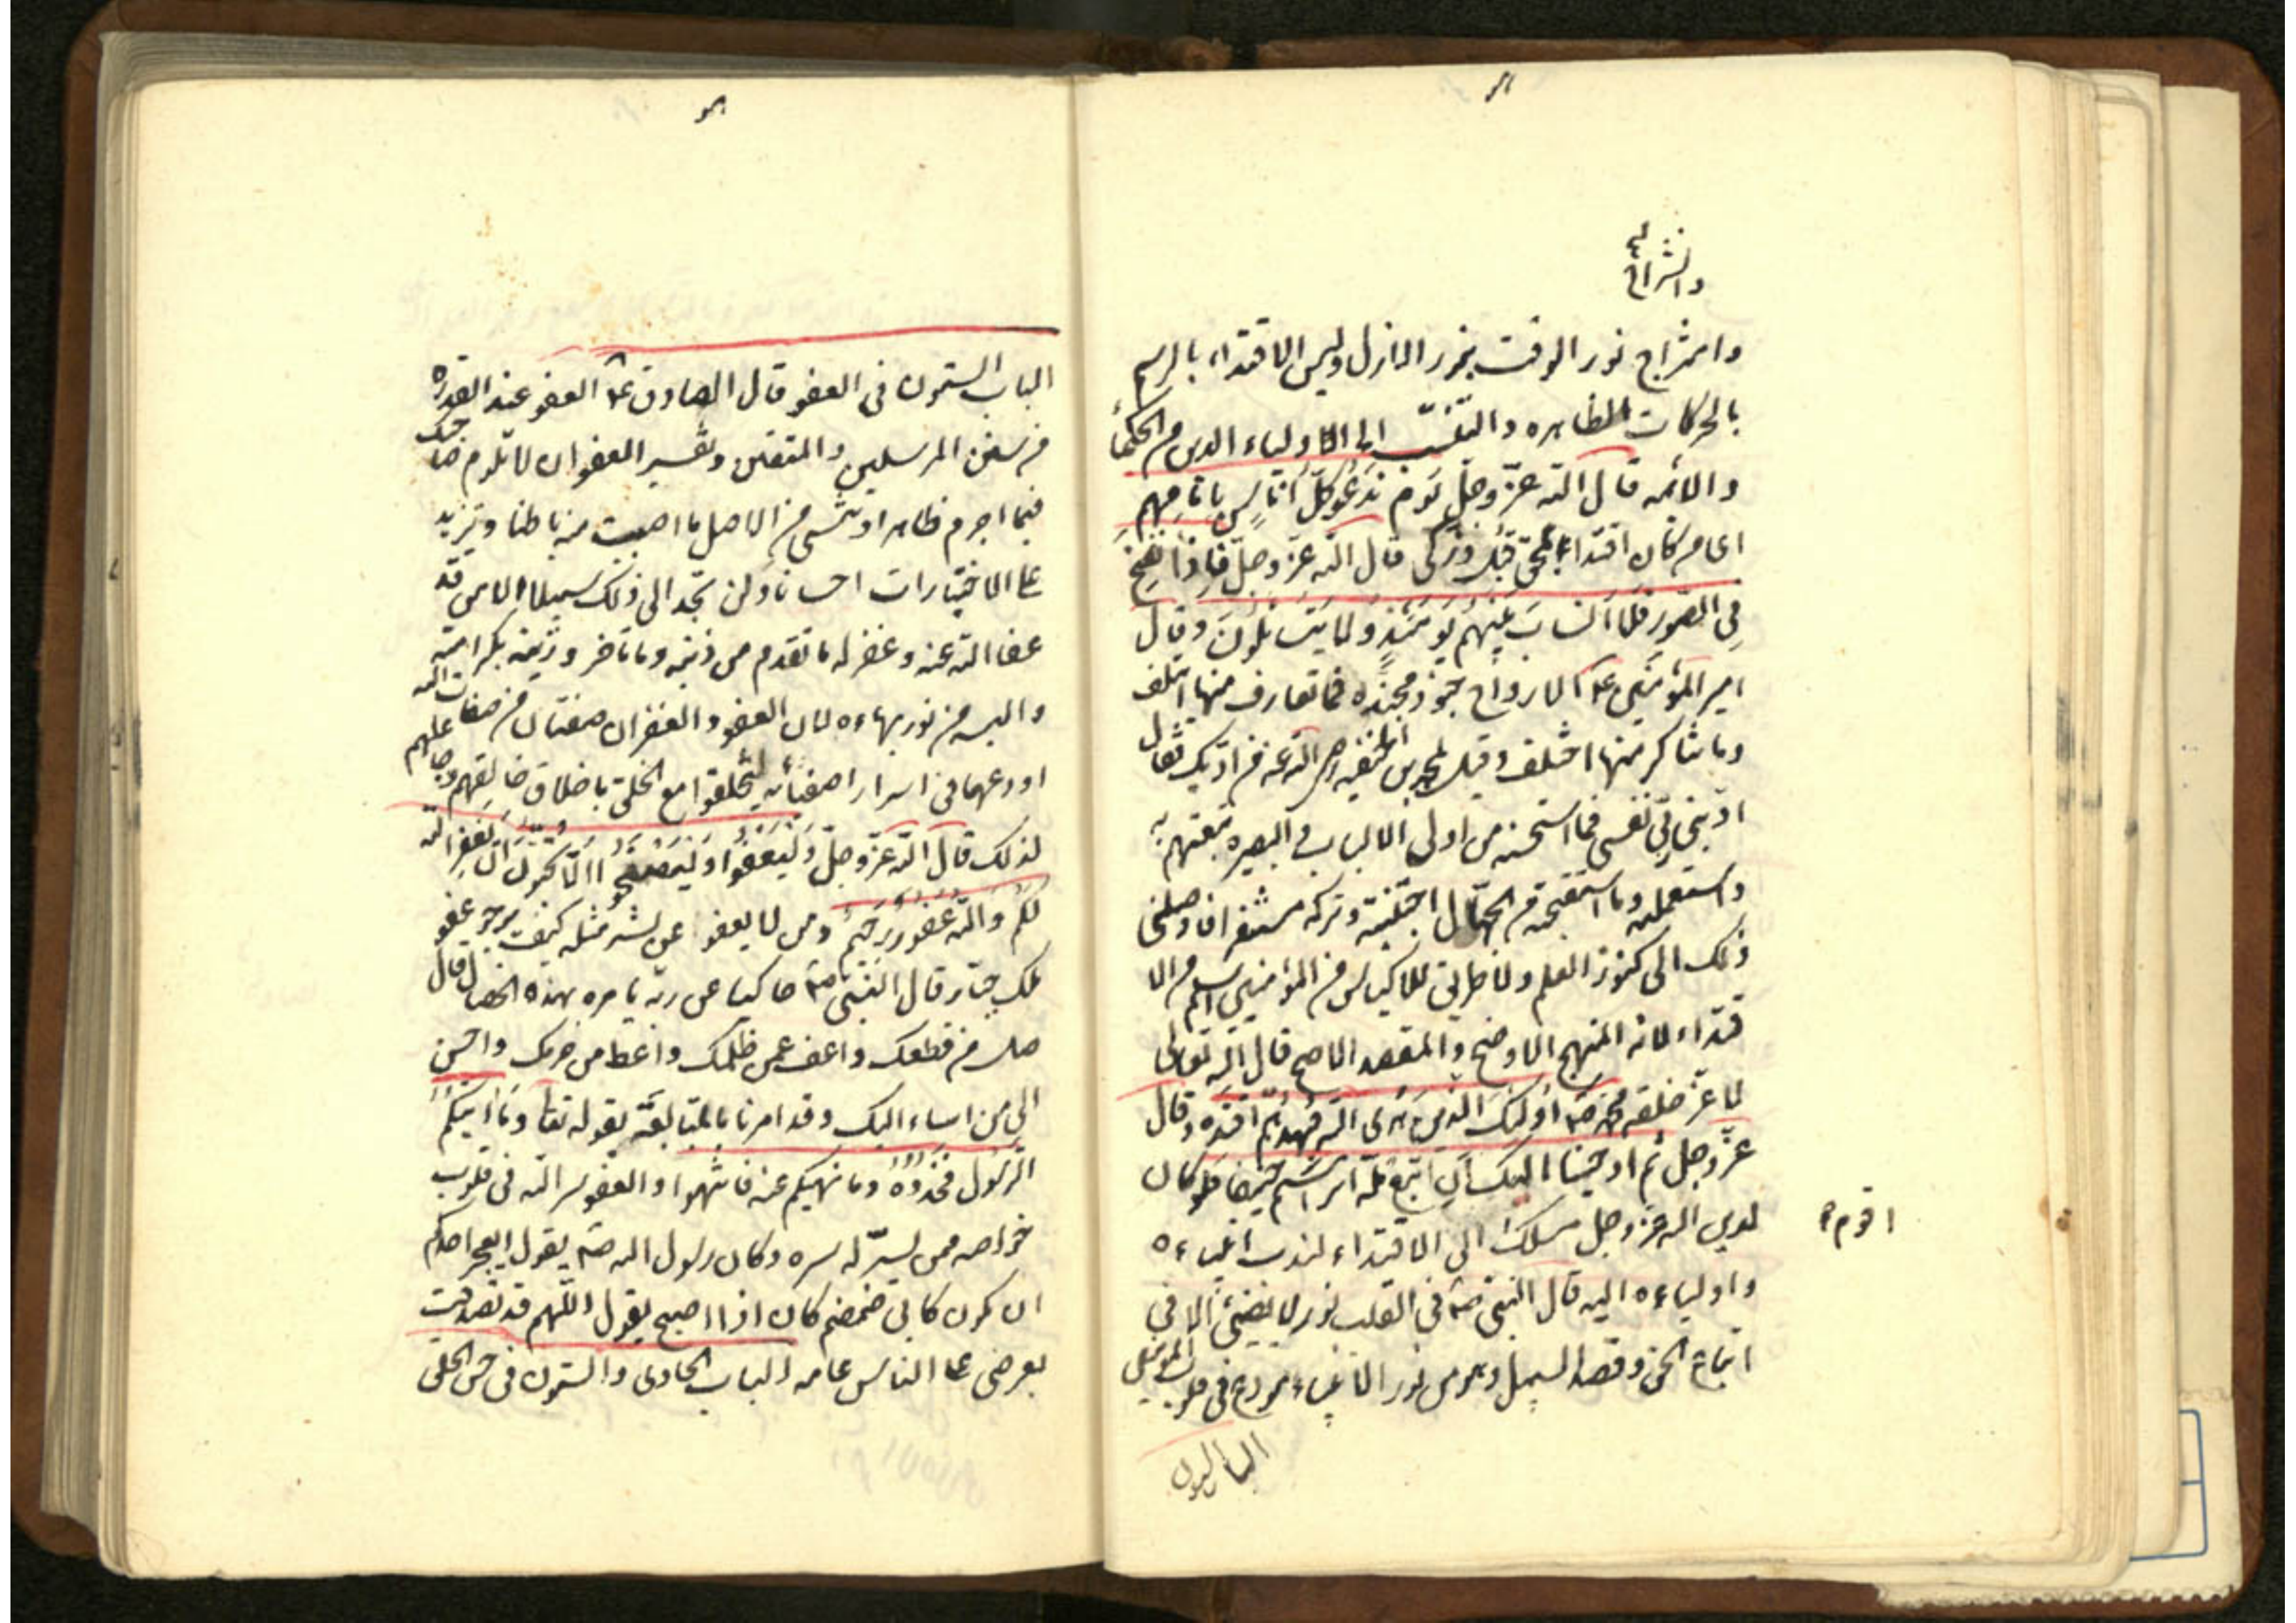 وانشراح
وامتزاج نور الوقت بنور الازل وليس الاقتداء بالرسم
بالحركات الظاهره والتنسّب الى الاولياء الدين من الحكماء
والائمه قال الله عزّ وجلّ يَوم نَدعُو كلّ اُناسٍ بِاِمَامِهِم
اى من كان اقتداء بمحق قبل وزكى قال الله عزّ وجلّ فَاِذا نُفِخَ
فِى الصّورِ فَلا اَنسابَ بَينَهُم يَومَئذٍ وَلا يَتَسائلُونَ وقال
امير المؤمنين ع الارواح جنود مجنده فما تعارف منها ائتلف
وما تناكر منها اختلف وقيل لمحمد بن الحنفيه رضى الله عنه من ادبك فقال
ادّبنى ربّى نفسى فما استحسنه من اولى الالباب و البصيره تبعتهم به
واستعمله وما استقبحته من الجهّال اجتنبته وتركه مستنفرا فاوصلنى
ذلك الى كنوز العلم ولا طريق للاكياس من المؤمنين اسلم من الا
قتداء لانه المنهج الاوضح والمقصد الاصح قال الله تعالى
لاعزّ خلقه محمد ص اولئك الذين هدى الله فبهديهم اقتده وقال
عزّ وجل ثم اوحينا اليك اَنِ اتبع ملّه ابراهيم حنيفا فلو كان
لدين الله عزّ وجل مسلك الى الاقتداء لندب انبياءه
اقوم
واولياءه اليه قال النبى ص فى القلب نور لا يضىء الا فى
اتباع الحق وقصد السبيل وهو من نور الانبياء مودع فى قلوب المؤمنين
الباب الستون
الباب الستون فى العفو قال الصادق ع العفو عند القدره
من سنن المرسلين والمتقين وتفسير العفو ان لا تلوم صاحبك
فيما اجرم ظاهرا وتنسى من الاصل ما اصبت منه باطنا وتزيد
على الاختيارات احسانا ولن تجد الى ذلك سبيلا الا من قد
عفا الله عنه وغفر له ما تقدم من ذنبه وما تاخر وزينه بكرامته
والبسه من نور بهاءه لان العفو والغفران صفتان من صفات الله
اودعهما فى اسرار اصفيائه ليتخلقوا مع الخلق باخلاق خالقهم وجاعلهم
لذلك قال الله عزّ وجلّ وَليَعفُوا وَليَصفَحُوا اَلا تُحِبّونَ اَن يَغفِرَ الله
لَكُم وَالله غَفُورٌ رَحيمٌ ومن لا يعفو عن بشر مثله كيف يرجو عفو
ملك جبّار قال النبى ص حاكيا عن ربّه يامره بهذه الخصال قال
صل من قطعك واعف عمن ظلمك واعط من حرمك واحسن
الى من اساء اليك وقد امرنا بالمتابعَة بقوله تعا وَما اتيكُم
الرّسُول فَخُذوهُ وما نهيكم عنه فانتهوا والعفو سر الله فى قلوب
خواصه ممن يسرّ له سره وكان رسول الله ص يقول ايعجز احدكم
ان يكون كابى ضمضم كان اذا اصبح يقول اللّهم قد تصدقت
بعرضى على الناس عامه الباب الحادى والستون فى حسن الخلق